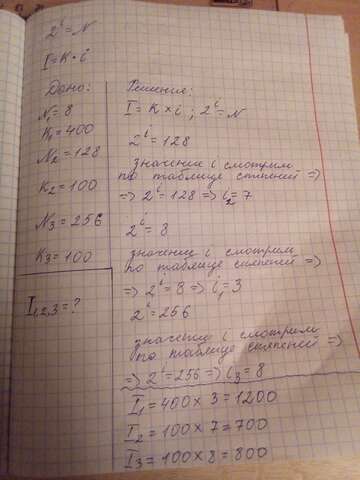 2^i = N
I = K · i
Дано:
N₁ = 8
K₁ = 400
N₂ = 128
K₂ = 100
N₃ = 256
K₃ = 100
I₁,₂,₃ = ?
Решение:
I = K × i ; 2^i = N
2^i = 128
значение i смотрим
по таблице степеней =>
=> 2^i = 128 => i₂ = 7
2^i = 8
значение i смотрим
по таблице степеней =>
=> 2^i = 8 => i₁ = 3
2^i = 256
значение i смотрим
по таблице степеней =>
=> 2^i = 256 => i₃ = 8
I₁ = 400 × 3 = 1200
I₂ = 100 × 7 = 700
I₃ = 100 × 8 = 800